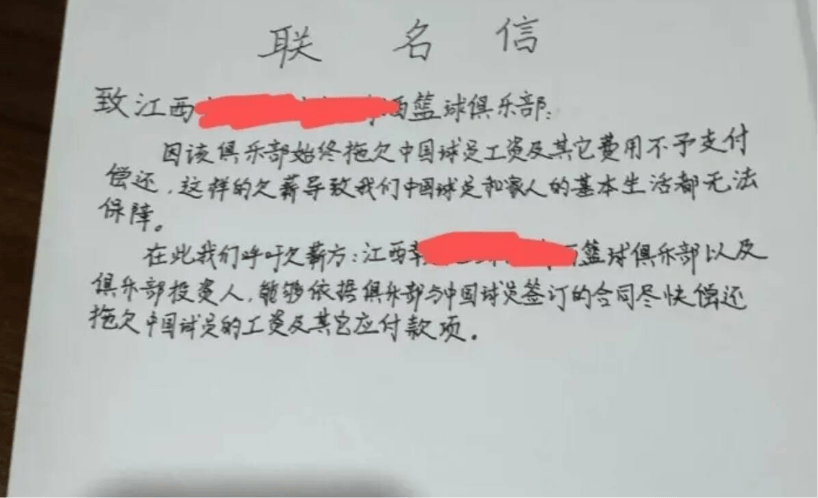 联名信
致江西 西篮球俱乐部：
因该俱乐部始终拖欠中国球员工资及其它费用不予支付
偿还，这样的欠薪导致我们中国球员和家人的基本生活都无法
保障。
在此我们呼吁欠薪方：江西 西篮球俱乐部以及
俱乐部投资人，能够依据俱乐部与中国球员签订的合同尽快偿还
拖欠中国球员的工资及其它应付款项。